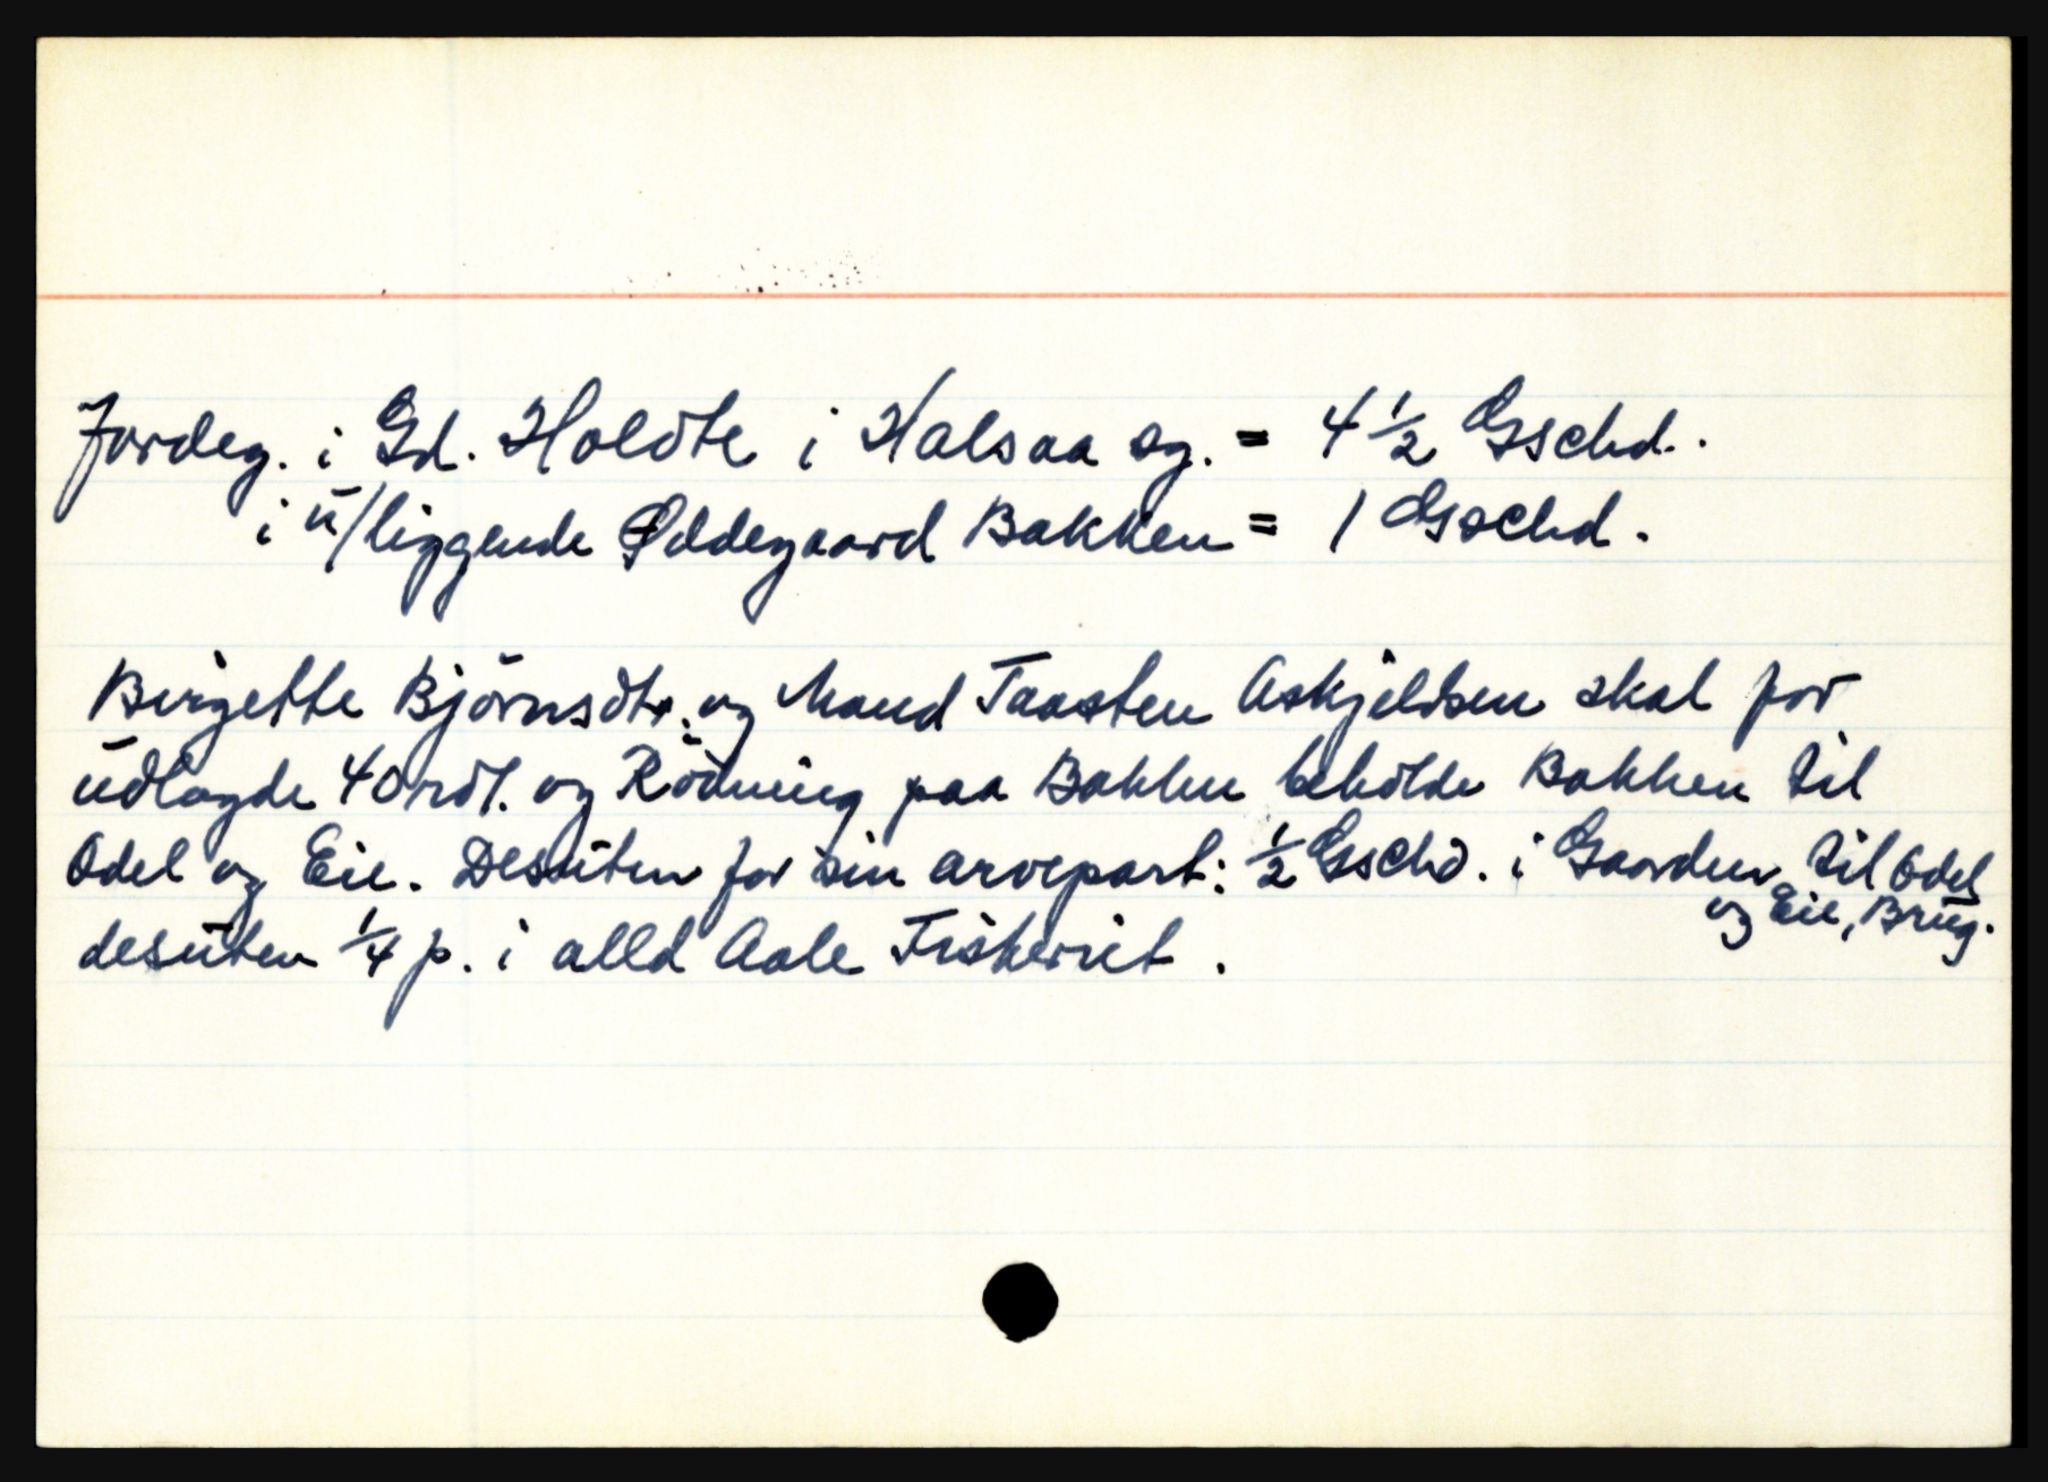 Jordeg. i Gd. Holdte i Halsaa sg. = 4 1/2 Gschd.
i u/liggende Ødegaard Bakken = 1 Gschd.
Birgette Björnsdtr. og Mand Taasten Askjeldsen skal for
udlagde 40 rdl. og Rödning paa Bakken beholde Bakken til
Odel og Eie. Desuten for sin arvepart: 1/2 Gschd. i Gaarden til Odel
og Eie, Brug.
desuten 1/4 p. i alld Aale Fisheriet.